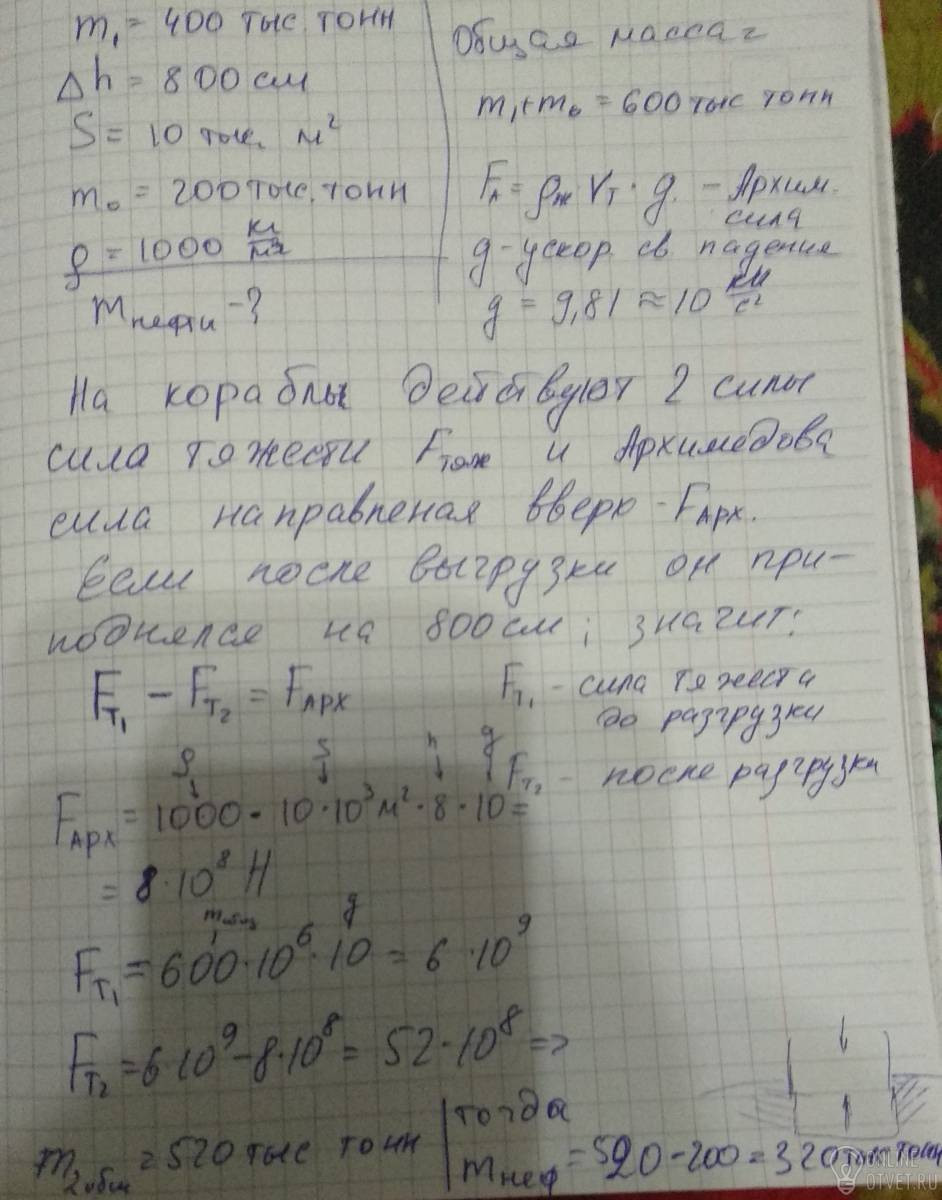 m₁ = 400 тыс. тонн
Δh = 800 см
S = 10 тыс. м²
m₀ = 200 тыс. тонн
ρ = 1000 кг/м³
m нефти - ?
Общая масса =
m₁+m₀ = 600 тыс тонн
F_A = ρж Vт · g. – Архим.
сила
g - ускор. св. падения
g = 9,81 ≈ 10 км/с²
На корабль действуют 2 силы
сила тяжести Fтяж и Архимедова
сила направленая вверх - Fарх.
Если после выгрузки он при-
поднялся на 800 см; значит:
Fт₁ – Fт₂ = Fарх
Fт₁ - сила тяжести
до разгрузки
Fт₂ – после разгрузки
ρ S h g
Fарх = 1000 · 10·10³ м² · 8 · 10 =
= 8·10⁸ Н
g
Fт₁ = 600·10⁶·10 = 6·10⁹
Fт₂ = 6·10⁹ – 8·10⁸ = 52·10⁸ =>
m₂общ = 520 тыс тонн
тогда
mнеф = 520 – 200 = 320 тыс тонн
ONLINE
OTVET.RU